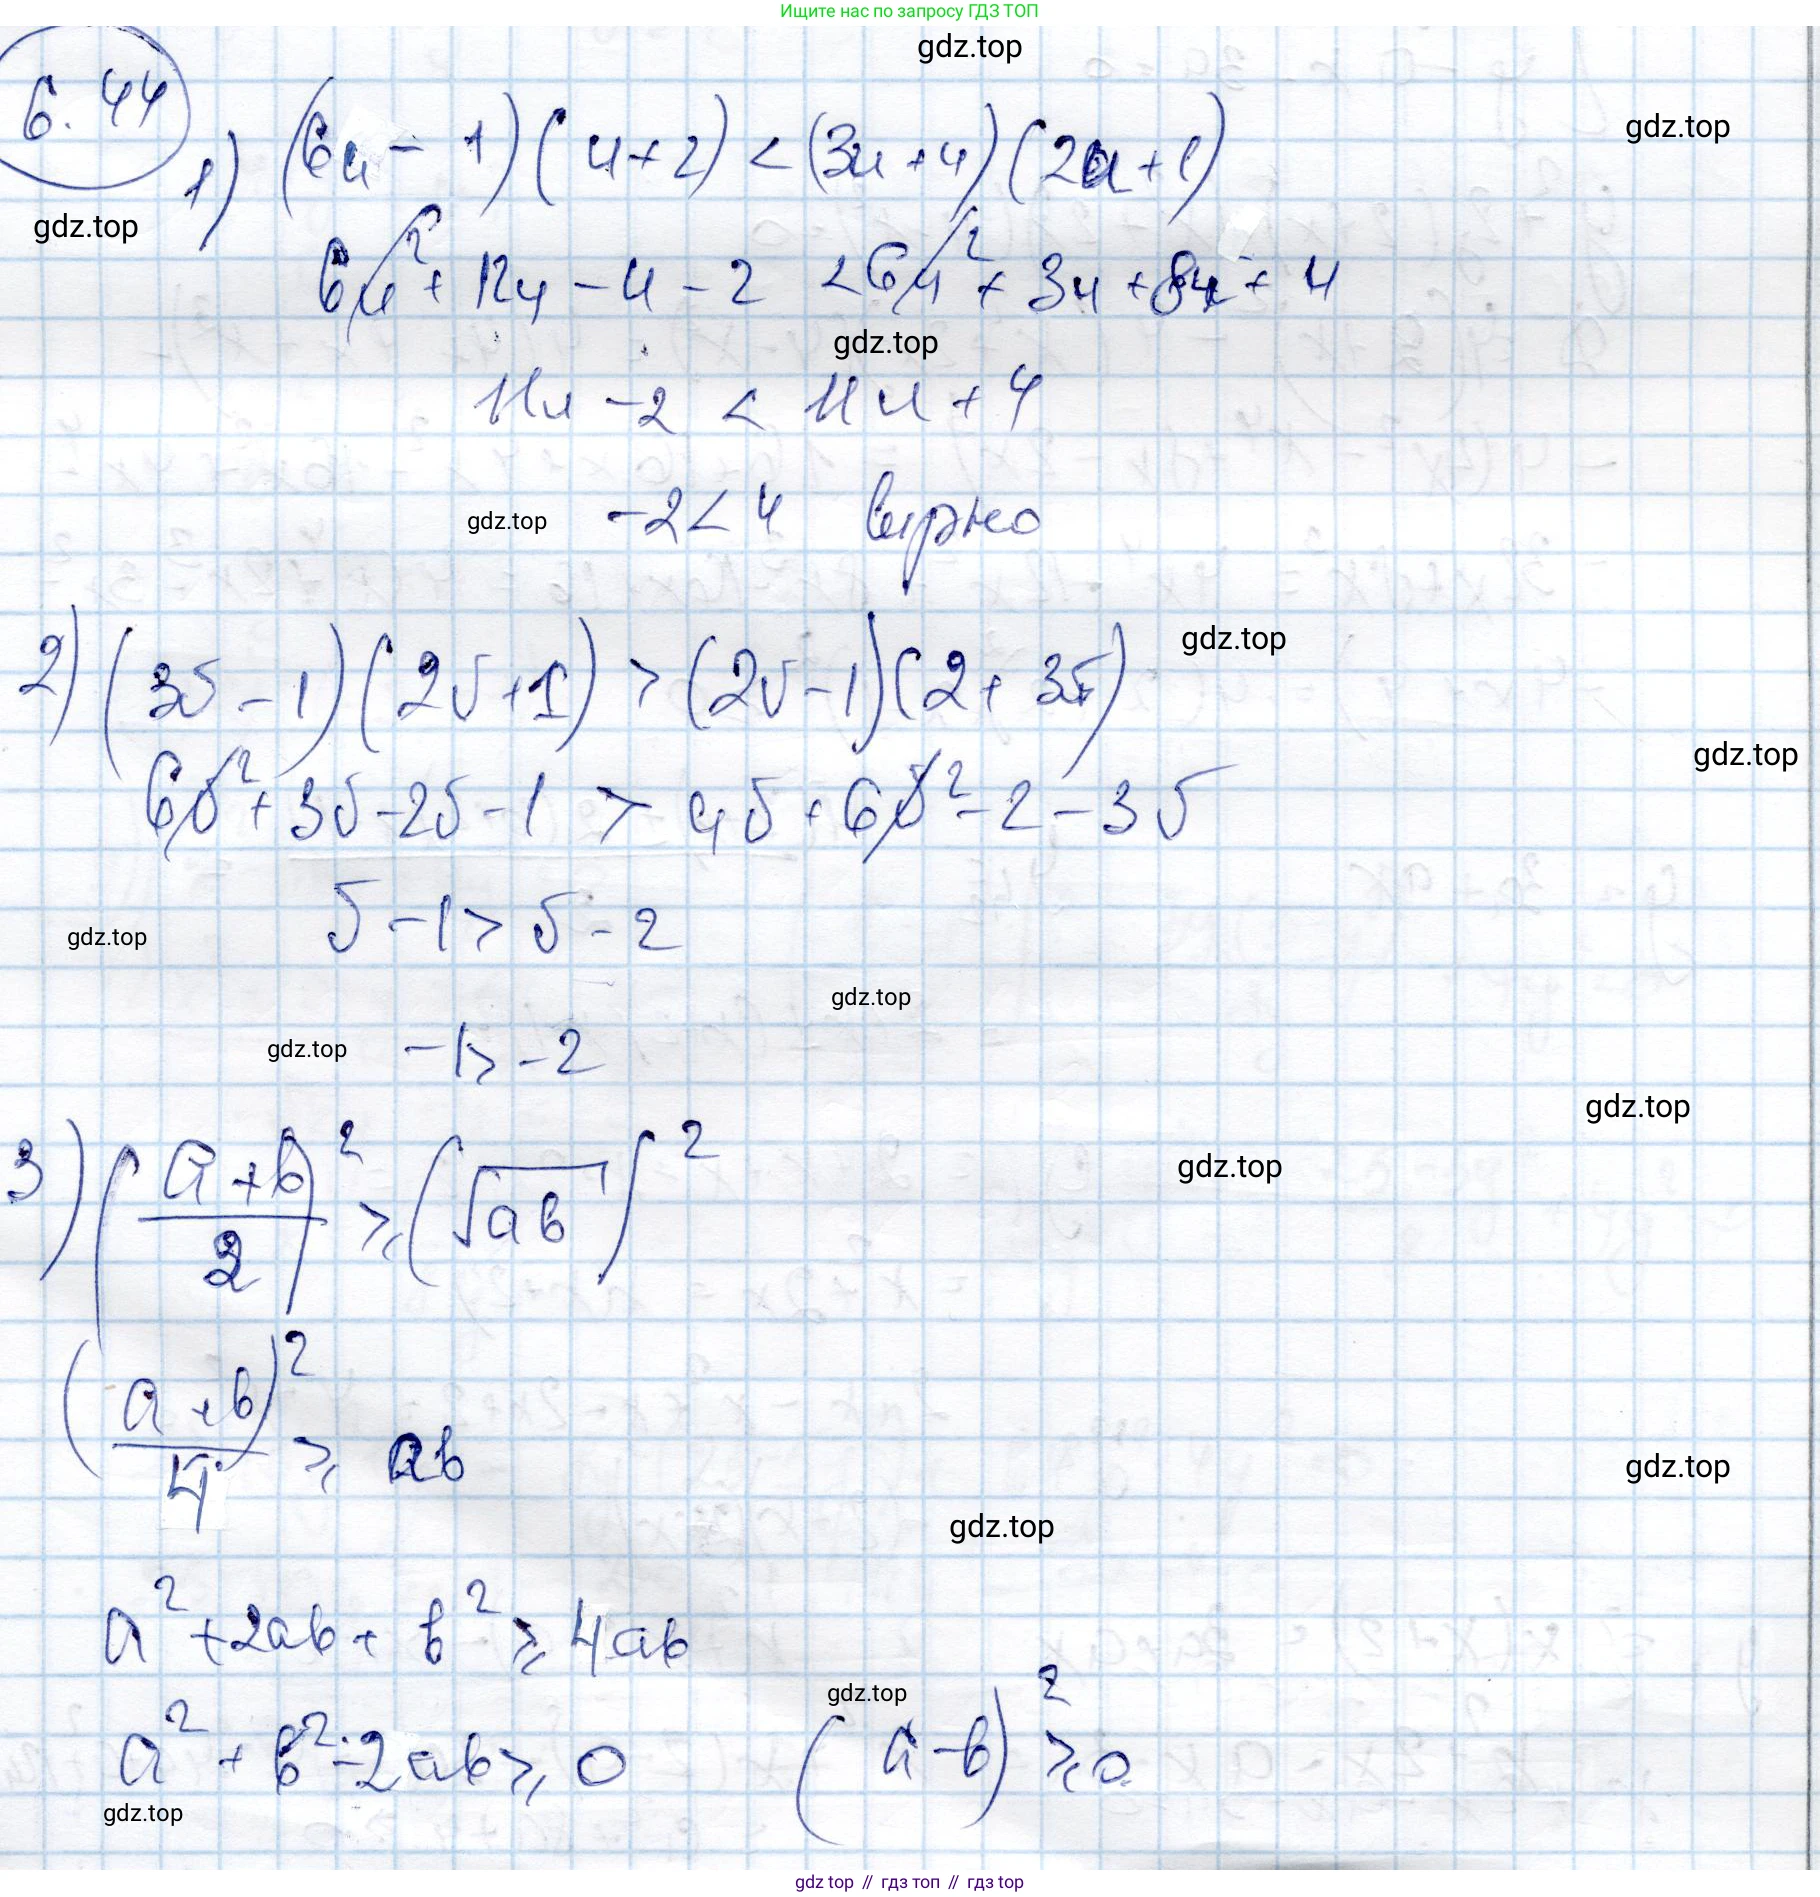 Ищите нас по запросу ГДЗ ТОП
gdz.top
6.44
gdz.top
1) (6u - 1)(u+2) < (3u+4)(2u+1)
gdz.top
6u² + 12u - u - 2 < 6u² + 3u + 8u + 4
gdz.top
11u - 2 < 11u + 4
gdz.top
-2 < 4 вірно
2) (3б - 1)(2б+1) > (2б-1)(2 + 3б)
gdz.top
gdz.top
6б² + 3б - 2б - 1 > 4б + 6б² - 2 - 3б
б - 1 > б - 2
gdz.top
gdz.top
gdz.top
-1 > -2
gdz.top
3) ((a+b)/2)² ⩾ (√ab)²
gdz.top
(a+b)²/4 ⩾ ab
gdz.top
gdz.top
a² + 2ab + b² ⩾ 4ab
gdz.top
a² + b² - 2ab ⩾ 0 (a-b)² ⩾ 0
gdz.top
gdz top // гдз топ // гдз top